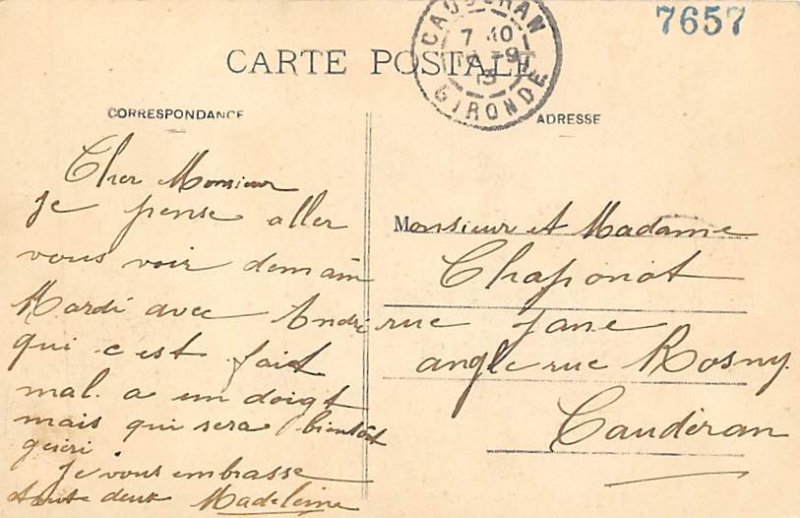 7657
CAUDERAN
7 40
GIRONDE
CARTE POSTALE
CORRESPONDANCE
ADRESSE
Cher Monsieur
je pense aller
vous voir demain
Mardi avec André
qui c'est fait
mal a un doigt
mais qui sera bientôt
guéri
Je vous embrasse
toute deux Madeleine
Monsieur et Madame
Chaponot
rue Jane
angle rue Rosny
Caudéran